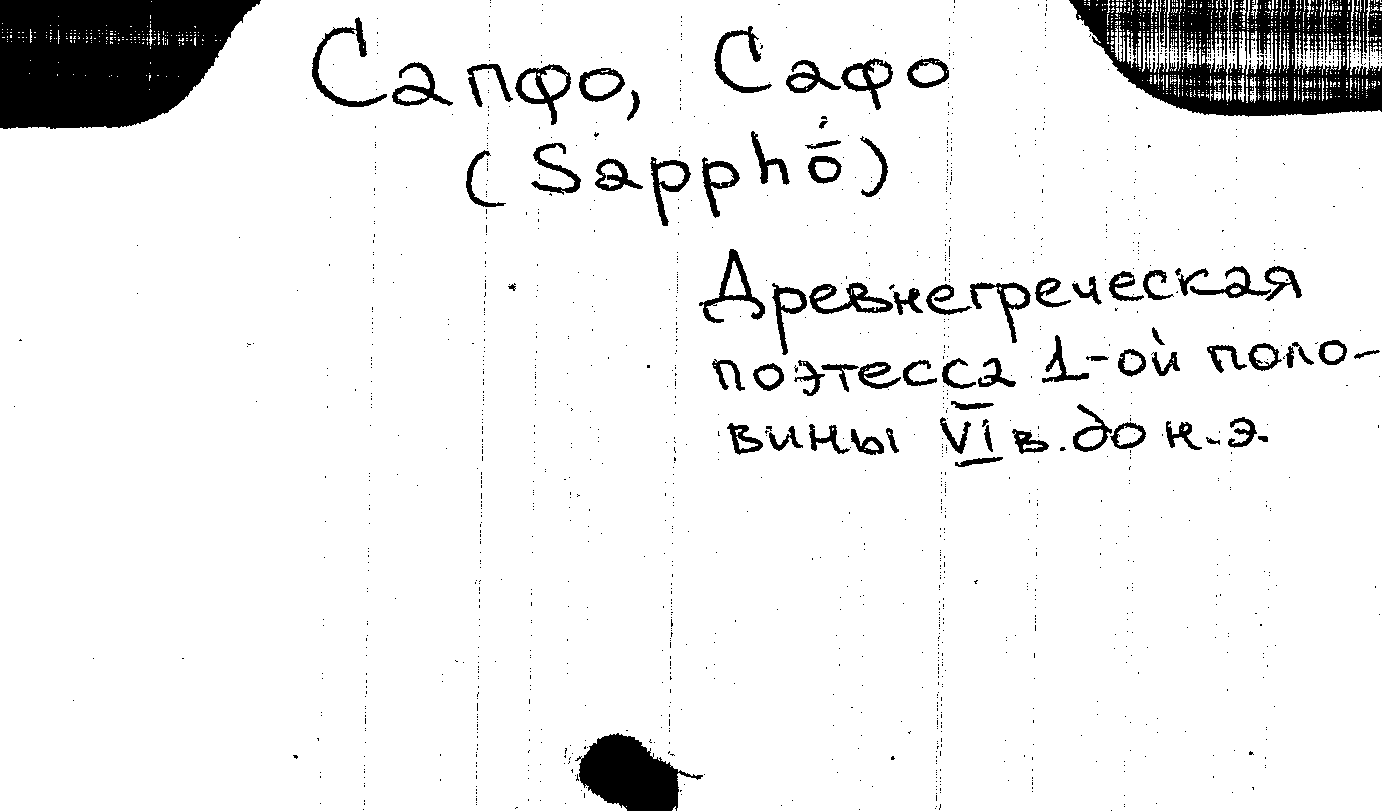 Сапфо, Сафо
(Sapphṓ)
Древнегреческая
поэтесса 1-ой поло-
вины VI в. до н.э.